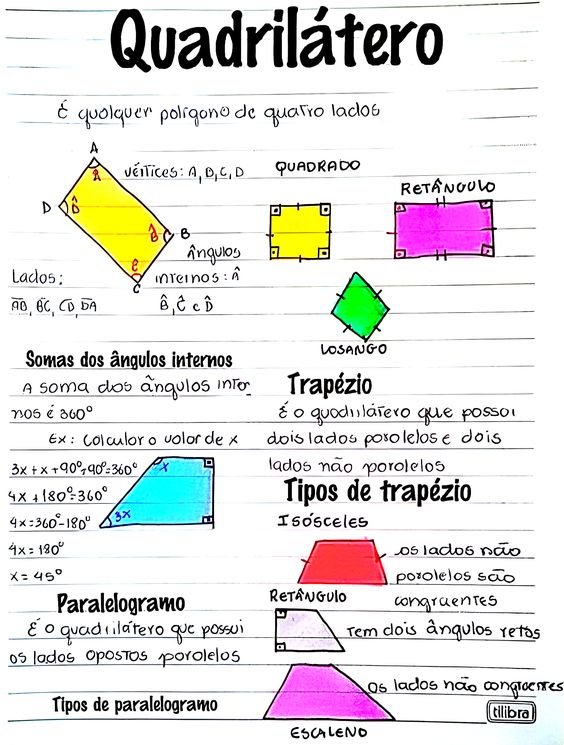 Quadrilátero
É qualquer polígono de quatro lados
A
vértices: A, D, C, D
Â
D
D̂
B̂
B
Ĉ
C
Ângulos
internos: Â
B̂, Ĉ e D̂
Lados:
A̅D̅, B̅C̅, C̅D̅, D̅A̅
QUADRADO
RETÂNGULO
LOSANGO
Somas dos ângulos internos
A soma dos ângulos inter
nos é 360°
Ex: Calcular o valor de x
3x + x + 90° + 90° = 360°
4x + 180° = 360°
4x = 360° - 180°
4x = 180°
x = 45°
x
3x
Paralelogramo
É o quadrilátero que possui
os lados opostos paralelos
Tipos de paralelogramo
Trapézio
É o quadrilátero que possui
dois lados paralelos e dois
lados não paralelos
Tipos de trapézio
ISÓSCELES
os lados não
paralelos são
congruentes
RETÂNGULO
Tem dois ângulos retos
os lados não congruentes
ESCALENO
tilibra